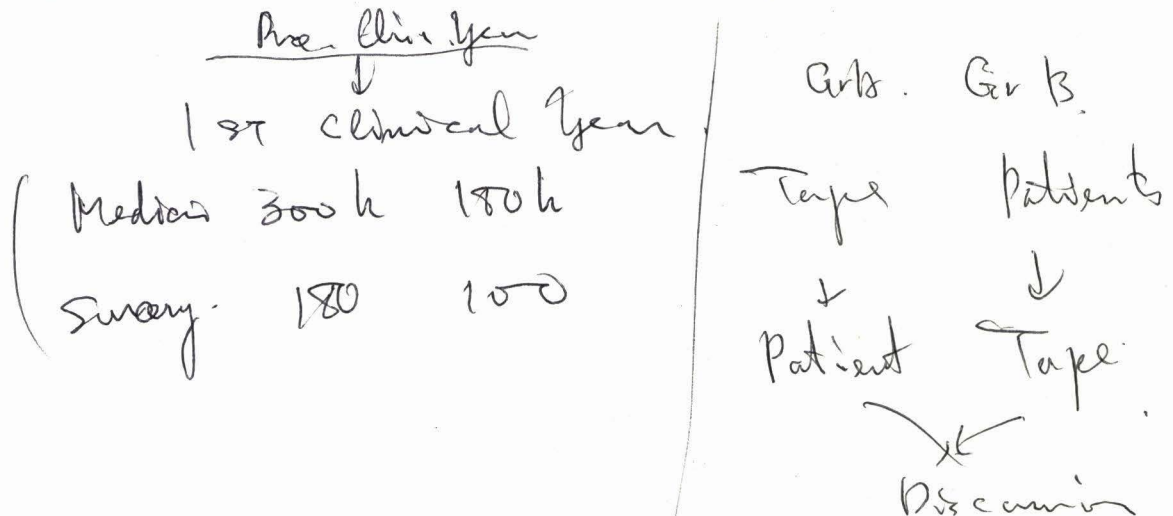 Pre. Clin. Year
1st Clinical Year
Medicin 300h 180h
Surgery. 180 100
GrA. Gr B.
Tape Patients
Patient Tape
Discussion